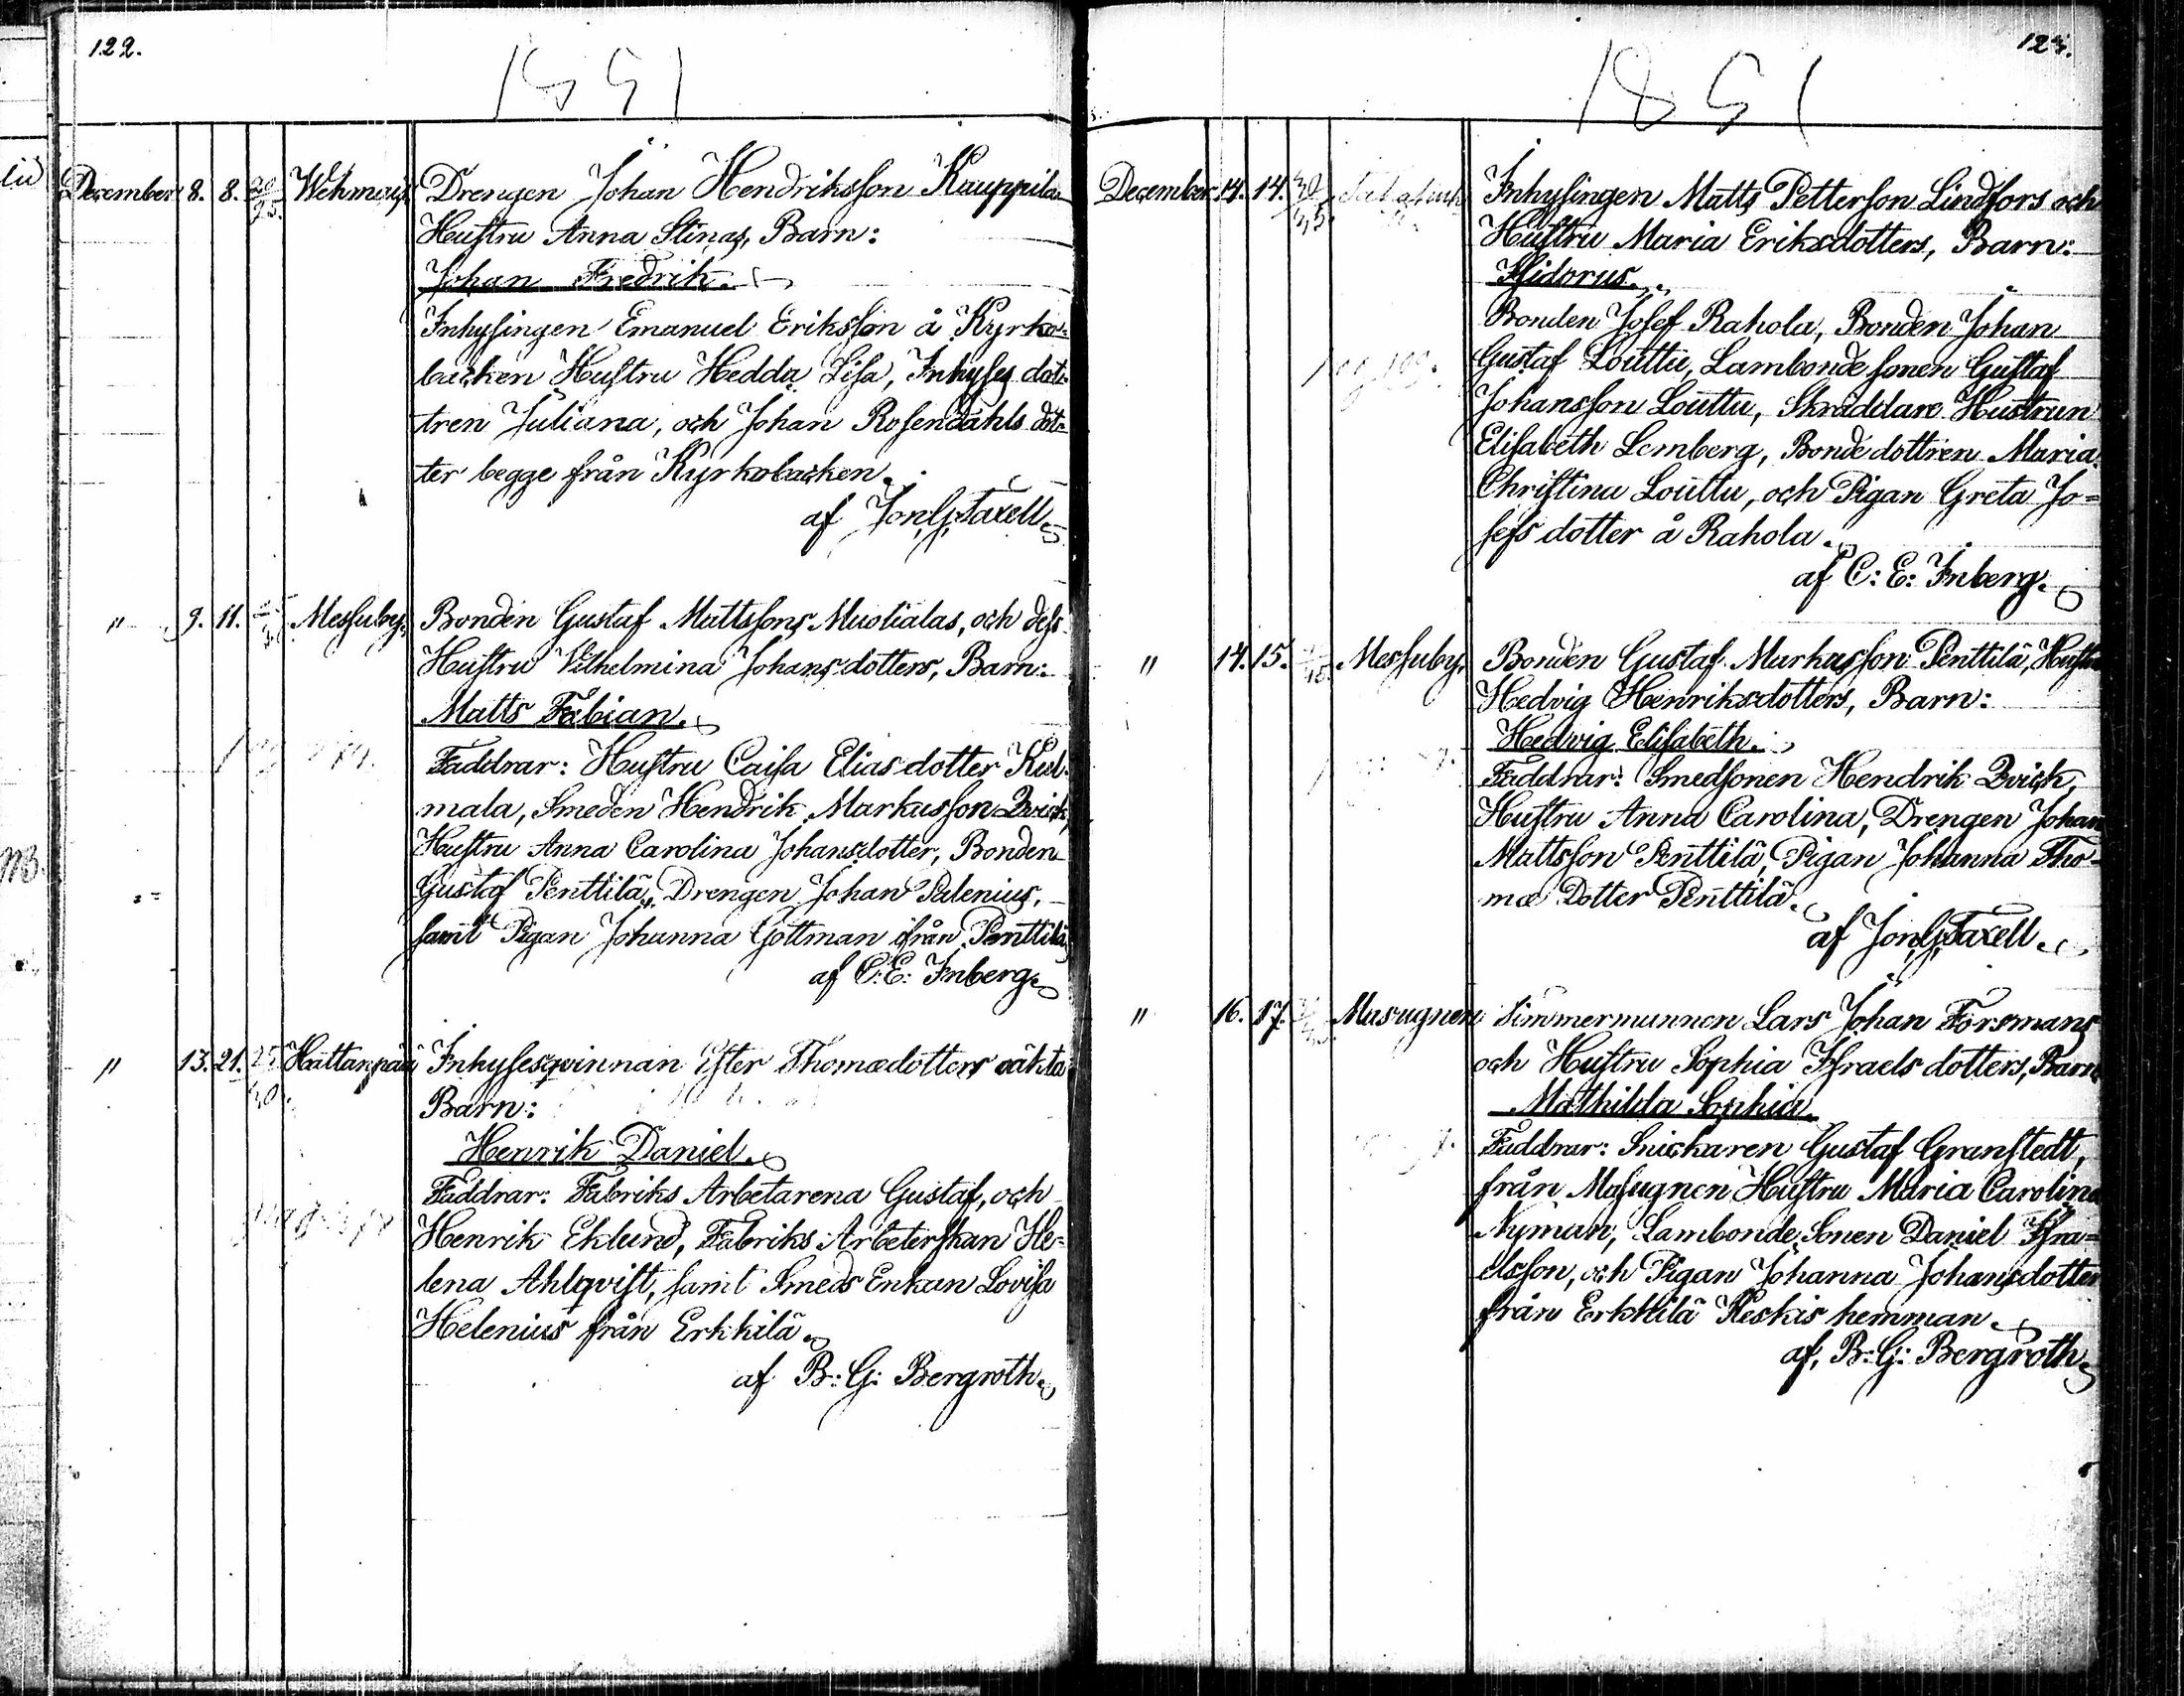 122.
1851
December 8. 8. Wehmais. Drengen Johan Hendriksson Kauppila
Hustru Anna Stinas, Barn:
Johan Fredrik.
Inhysingen Emanuel Eriksson å Kyrko-
backen Hustru Hedda Lisa, Inhyses dot-
tren Juliana, och Johan Rosendahls dot-
ter begge från Kyrkobacken.
af Jon G Taxell
" 9. 11. Messuby. Bonden Gustaf Mattssons Muotialas, och dess
Hustru Vilhelmina Johansdotters, Barn:
Matts Fabian.
Faddrar: Hustru Caisa Elias dotter Kul-
mala, Smeden Hendrik Markusson Qvick,
Hustru Anna Carolina Johansdotter, Bonden
Gustaf Penttilä, Drengen Johan Palenius,
samt Pigan Johanna Göttman ifrån Penttilä
af C: E: Inberg.
" 13. 21. 25 30 Hattanpää Inhysesqvinnan Ester Thomædotters oäkta
Barn:
Henrik Daniel.
Faddrar: Fabriks Arbetarena Gustaf, och
Henrik Eklund, Fabriks Arbeterskan He-
lena Ahlqvist, samt Smeds Enkan Lovisa
Helenius från Erkkilä.
af B: G: Bergroth.
123.
1851
December. 14. 14. 30 35 Inhysingen Matts Petterson Lindfors och
Hustru Maria Eriksdotters, Barn:
Isidorus.
Bonden Josef Rahola, Bonden Johan
Gustaf Louttu, Lambonde sonen Gustaf
Johansson Louttu, Skräddare Hustrun
Elisabeth Lemberg, Bonde dottren Maria
Christina Louttu, och Pigan Greta Jo-
sefs dotter å Rahola.
af C: E: Inberg.
" 14. 15. Messuby. Bonden Gustaf Markusson Penttilä, Hustru
Hedvig Henriksdotters, Barn:
Hedvig Elisabeth.
Faddrar: Smedsonen Hendrik Qvick,
Hustru Anna Carolina, Drengen Johan
Mattsson Penttilä, Pigan Johanna Tho-
mæ Dotter Penttilä.
af Jon G Taxell.
" 16. 17. Masugnen Timmermannen Lars Johan Forsmans
och Hustru Sophia Israels dotters, Barn
Mathilda Sophia.
Faddrar: Snickaren Gustaf Granstedt,
från Masugnen Hustru Maria Carolina
Nyman, Lambonde Sonen Daniel Isra-
elsson, och Pigan Johanna Johansdotter
från Erkkilä Keskis hemman.
af, B: G: Bergroth.